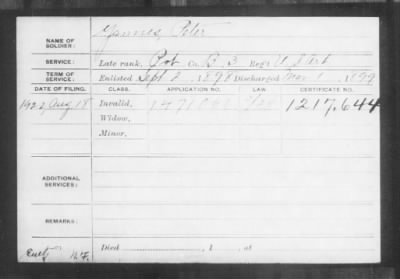 NAME OF SOLDIER: Peter
SERVICE: Late rank, Pvt Co. B, 3 Reg't U.S. Art
TERM OF SERVICE: Enlisted Sept 2, 1898 Discharged Mar 1, 1899
DATE OF FILING. CLASS. APPLICATION NO. LAW. CERTIFICATE NO.
1922, Aug. 18 Invalid, 1217.644
Widow,
Minor,
ADDITIONAL SERVICES:
REMARKS:
Died , 1 , at